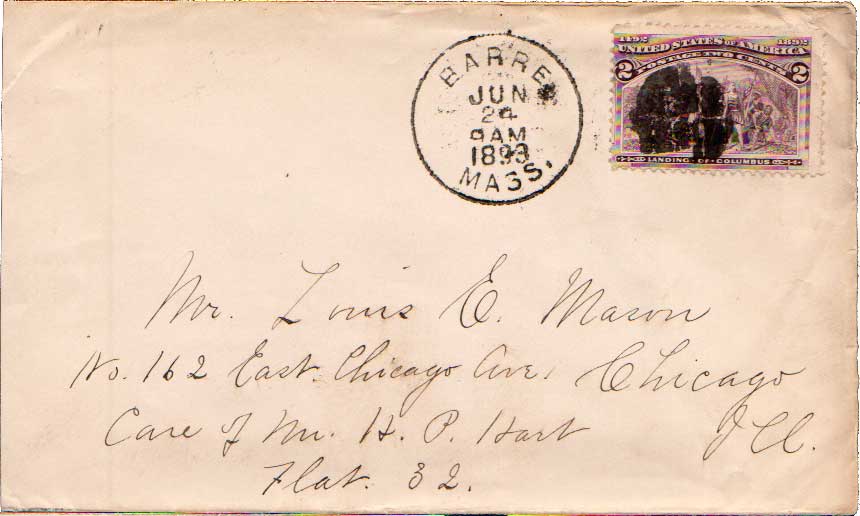 BARRE
JUN
24
9AM
1893
MASS.
1492 1892
UNITED STATES OF AMERICA
POSTAGE TWO CENTS
2 2
LANDING OF COLUMBUS
Mr. Louis E. Mason
No. 162 East. Chicago Ave. Chicago
Care of Mr. H. P. Hart Ill.
Flat. 32.